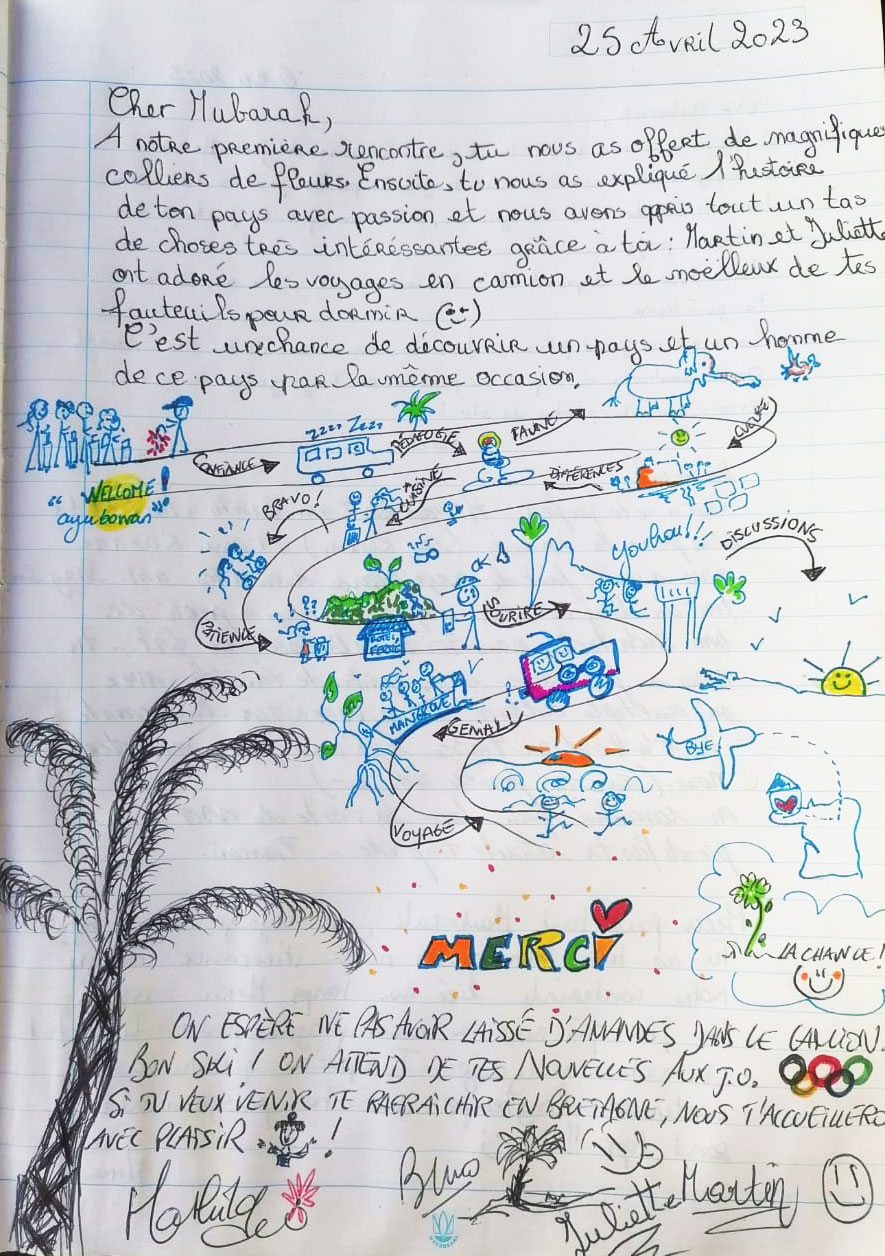 25 Avril 2023
Cher Mubarak,
A notre première rencontre, tu nous as offert de magnifiques
colliers de fleurs. Ensuite, tu nous as expliqué l'histoire
de ton pays avec passion et nous avons appris tout un tas
de choses très intéréssantes grâce à toi : Martin et Juliette
ont adoré les voyages en camion et le moëlleux de tes
fauteuils pour dormir
C'est une chance de découvrir un pays et un homme
de ce pays par la même occasion.
zzzz Zzzz
CONFIANCE
PÉDAGOGIE
FAUNE
WELCOME !
"ayubowan"
BRAVO !
CUISINE
DIFFÉRENCES
Youhou!!!
DISCUSSIONS
OK
PATIENCE
HOTEL
FERMÉ
SOURIRE
MANGROVE
GENIAL !
BYE
VOYAGE
MERCi
LA CHANCE !
ON ESPÈRE NE PAS AVOIR LAISSÉ D'AMANDES DANS LE CAMION.
BON SKI ! ON ATTEND DE TES NOUVELLES AUX J.O.
SI TU VEUX VENIR TE RAFRAICHIR EN BRETAGNE, NOUS T'ACCUEILLERO
AVEC PLAISIR !
Mathilde
Juliette Martin